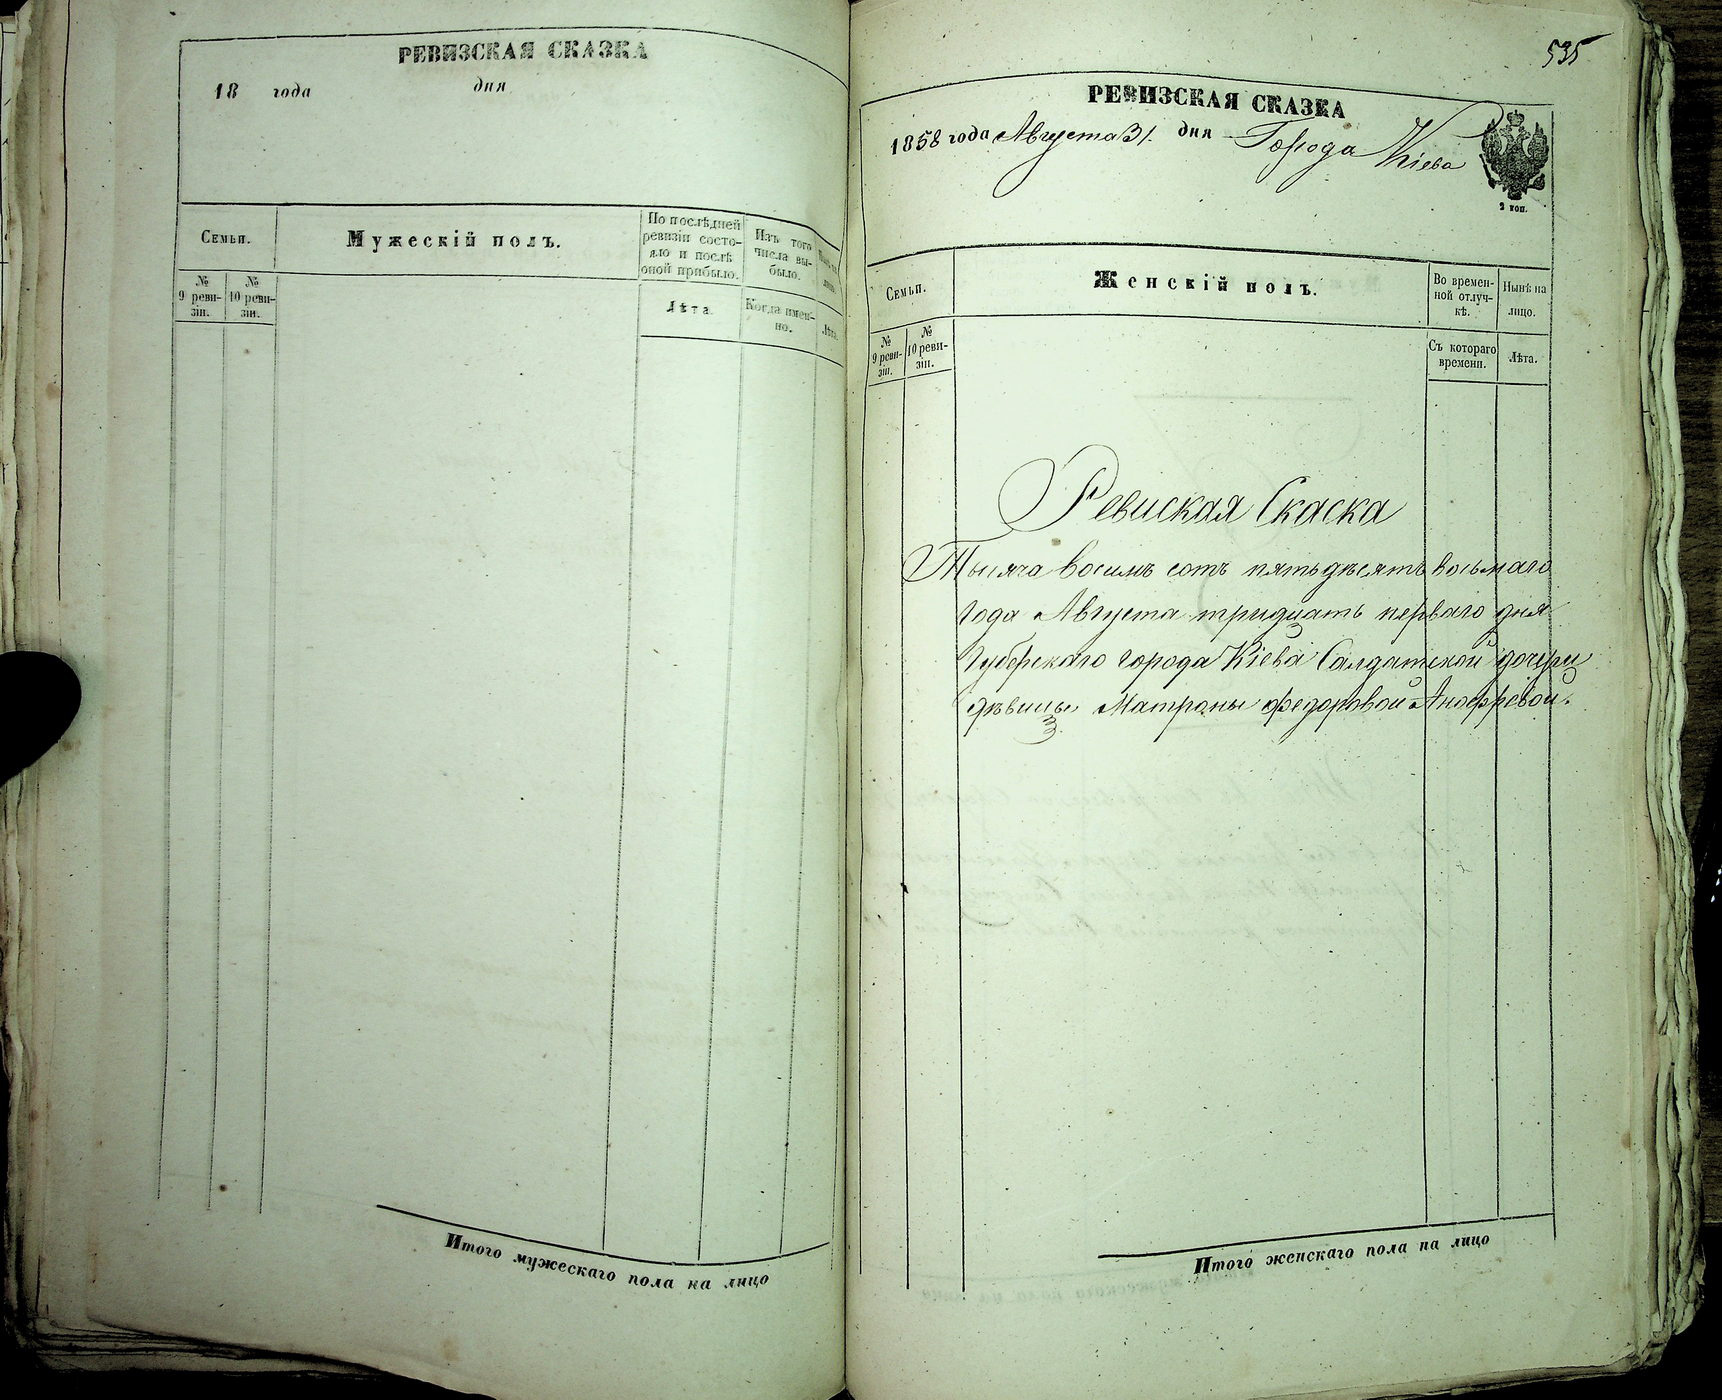 РЕВИЗСКАЯ СКАЗКА
18 года дня
Семьи.
Мужескій полъ.
По послѣдней
ревизіи состо-
яло и послѣ
оной прибыло.
Изъ того
числа вы-
было.
№
9 реви-
зіи.
№
10 реви-
зіи.
Лѣта.
Когда имен-
но.
Лѣта.
Итого мужескаго пола на лицо
535
РЕВИЗСКАЯ СКАЗКА
1858 года Августа 31. дня Города Кіева
2 коп.
Семьи.
Женскій полъ.
Во времен-
ной отлуч-
кѣ.
Нынѣ на
лицо.
№
9 реви-
зіи.
№
10 реви-
зіи.
Съ котораго
времени.
Лѣта.
Ревиская Скаска
Тысяча восимъ сотъ пятьдѣсятъ восьмаго
года Августа тридцать перваго дня
Губерскаго города Кіева Салдатской дочери
дѣвицы Матроны федоровой
Итого женскаго пола на лицо